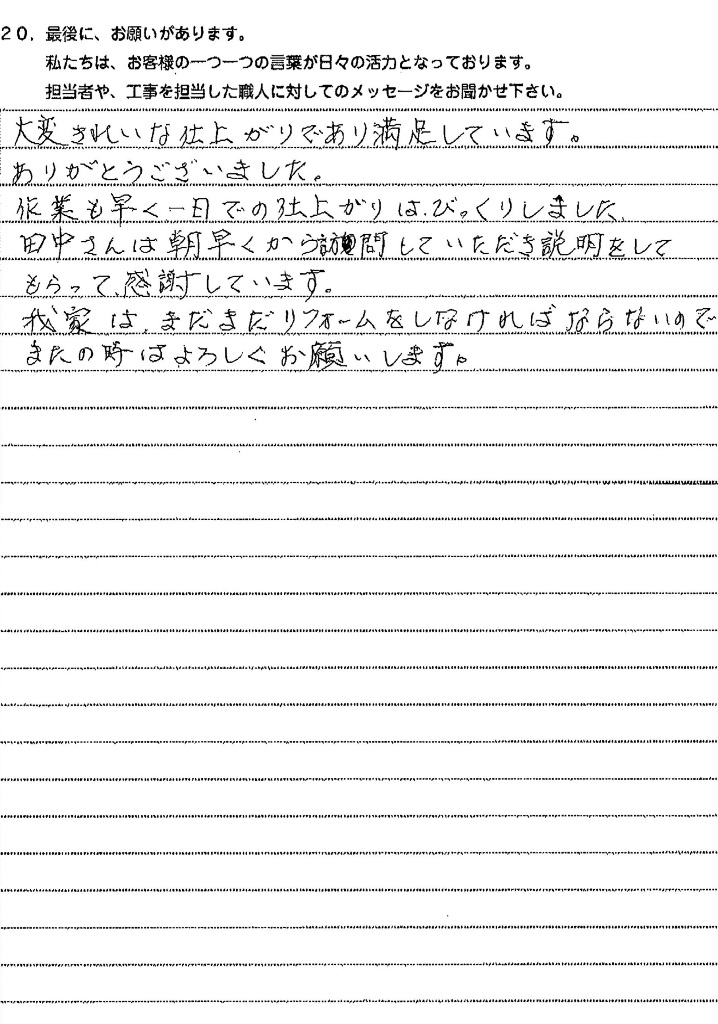 20．最後に、お願いがあります。
私たちは、お客様の一つ一つの言葉が日々の活力となっております。
担当者や、工事を担当した職人に対してのメッセージをお聞かせ下さい。
大変きれいな仕上がりであり満足しています。
ありがとうございました。
作業も早く一日での仕上がりは、びっくりしました、
田中さんは朝早くから訪問していただき説明をして
もらって、感謝しています。
我家は、まだまだリフォームをしなければならないので
またの時はよろしくお願いします。